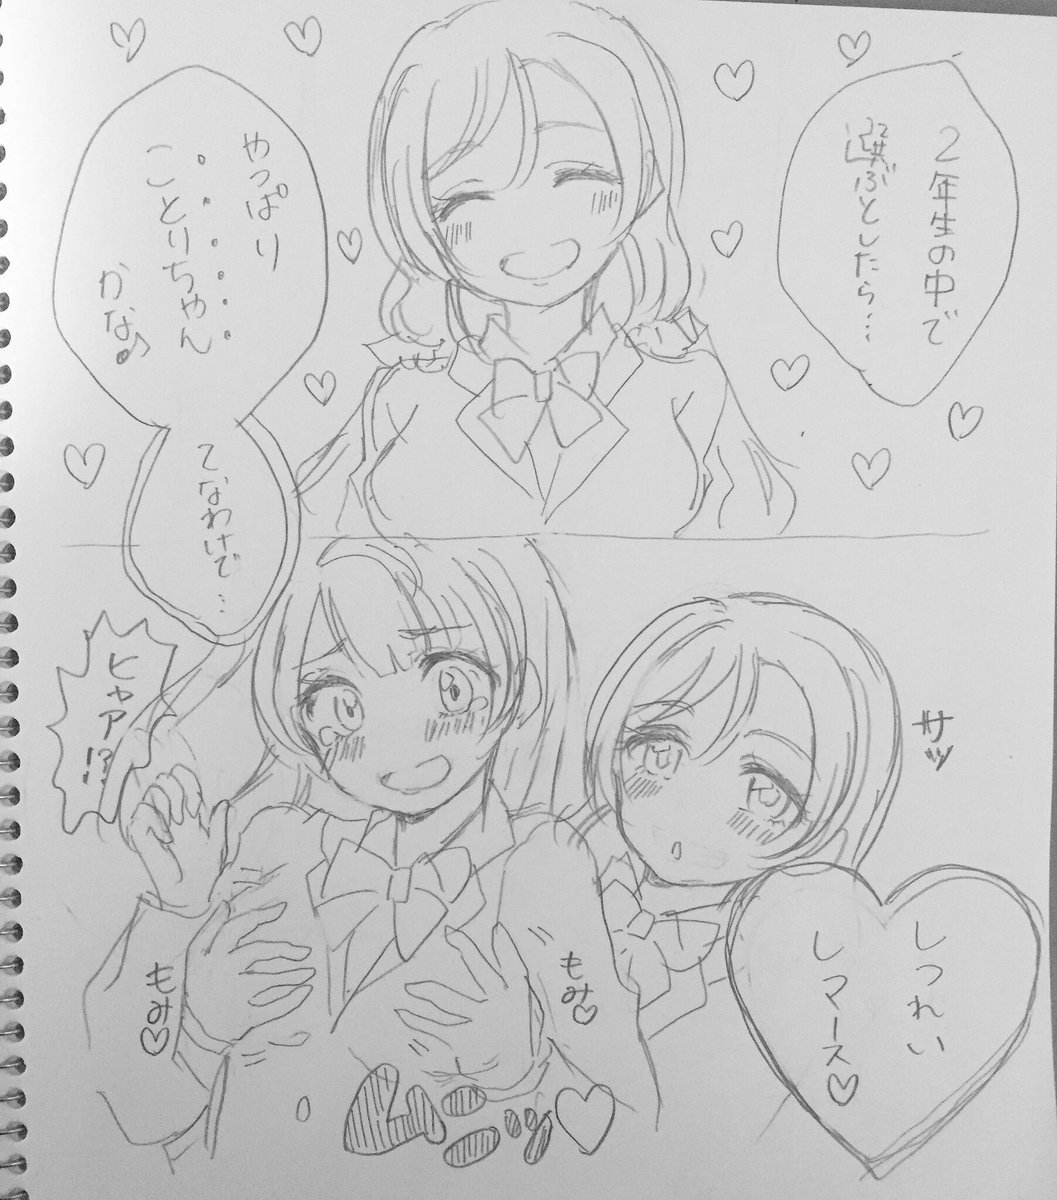 ２年生の中で
選ぶとしたら…
やっぱり
ことりちゃん
かな♪
てなわけで…
サッ
しつれい
しマース♡
ヒャア!?
もみ♡
もみ♡